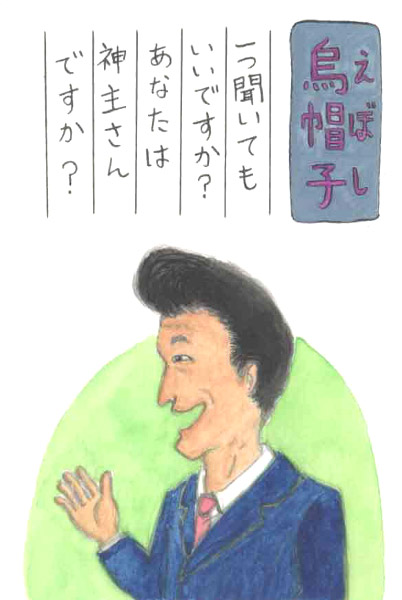 烏帽子
えぼし
一つ聞いても
いいですか?
あなたは
神主さん
ですか?